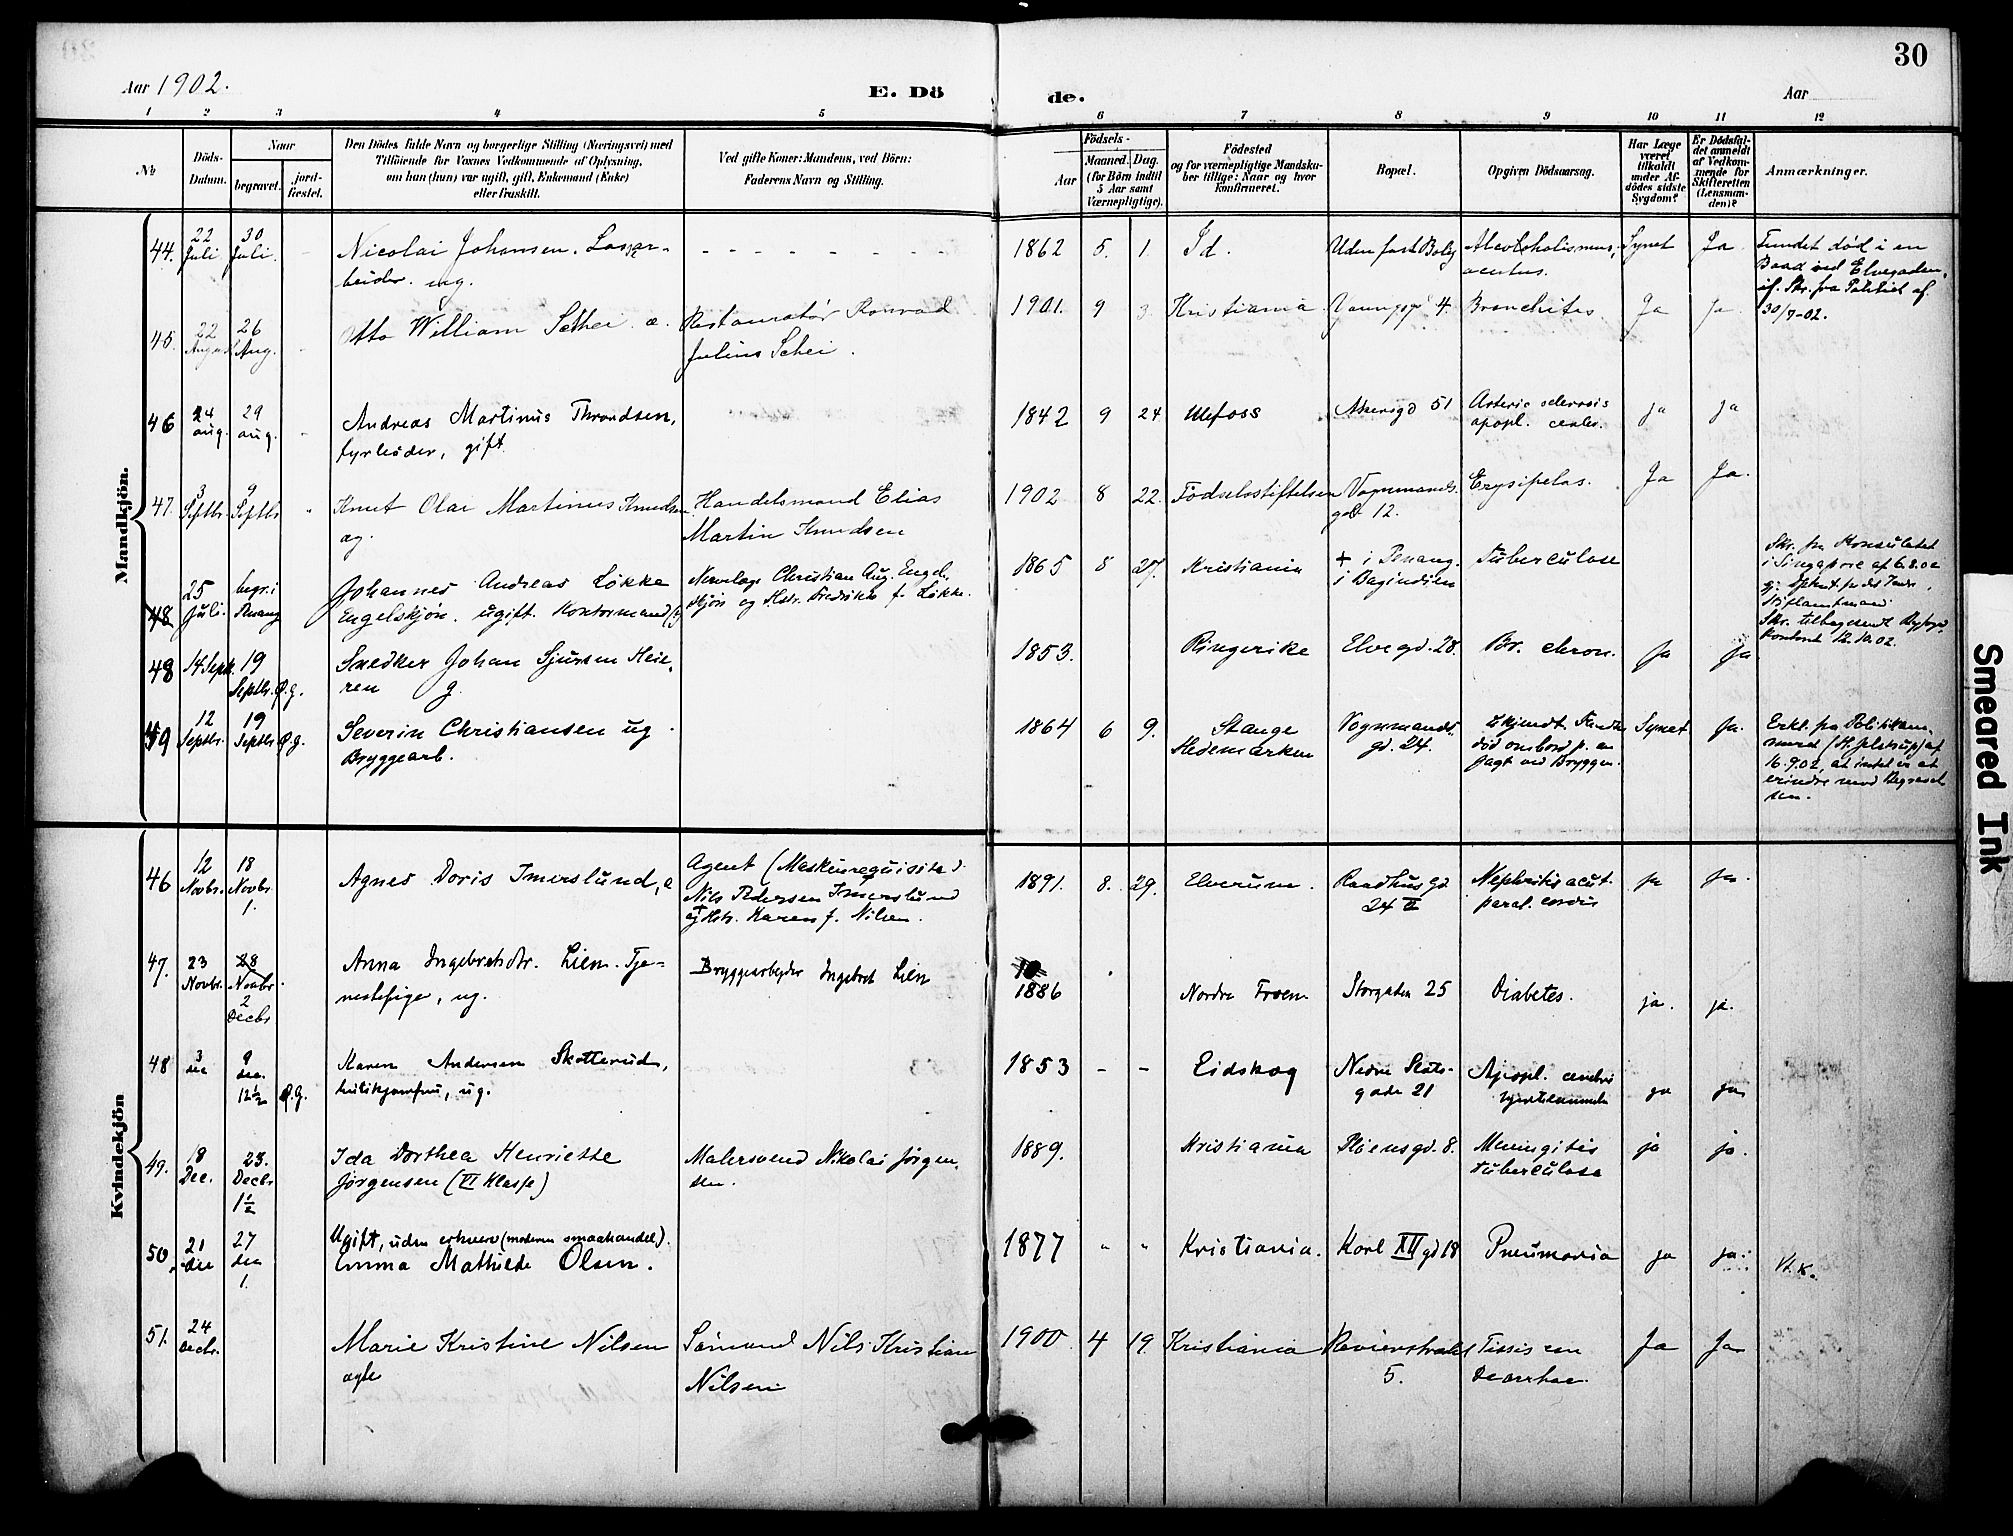 30
Aar 1902.
E. Döde.
Aar
1 2 3 4 5 6 7 8 9 10 11 12
No
Döds-Datum.
Naar
begravet.
jord-fæstet.
Den Dödes fulde Navn og borgerlige Stilling (Næringsvei) med
Tilföiende for Voxnes Vedkommende af Oplysning,
om han (hun) var ugift, gift, Enkemand (Enke)
eller fraskilt.
Ved gifte Koner: Mandens, ved Börn:
Faderens Navn og Stilling.
Födsels-
Aar
Maaned. Dag.
(for Börn indtil
5 Aar samt
Værnepligtige).
Födested
og for værnepligtige Mandsku-
ber tillige: Naar og hvor
konfirmeret.
Bopæl.
Opgiven Dödsaarsag.
Har Læge
været
tilkaldt
under Af-
dödes sidste
Sygdom?
Er Dödsfal-
det anmeldt
af Vedkom-
mende for
Skifteretten
(Lensman-
den)?
Anmærkninger.
Mandkjön.
44. 22 Juli 30 Juli. Nicolai Johansen. Losar-
beider. ug.
1862 5. 1. Id. Uden fast Bolig Alcoholismus
acutus. Synet Ja Fundet død i en
Baad ved Elvegaden,
30/7-02.
45. 22 August 26 Aug. Otto William Schei æ. Restauratør Konrad
Julius Schei.
1901. 9 3. Kristiania 4. Bronchitis. Ja Ja
46 24 aug. 29 aug. Andreas Martinus Throndsen,
fyrbøder, gift.
1842 9 24 Ulefoss Akersgd 51 Arterio sclerosis
apopl. cerebr. ja ja
47. 3 Septbr. 9 Septbr. Knut Olai Martinus Knudsen
æg. Handelsmand Elias
Martin Knudsen
1902 8 22. Fødselsstiftelsen Vognmands-
gd. 12. Erysipelas. Ja Ja.
48 25 Juli. begr. i Penang Johannes Andreas Løkke
Engelskjøn. ugift. Kontormand Christian Aug. Engel-
skjøn og Hstr. Fredrikke f. Løkke.
1865 8 27. Kristiania + i Penang
i Bagindien Tuberculose
Skr. fra Konsulatet
i Singapore af 6.8.02
Stiftamtmand
Skr. tilbagesendt
kontoret 12.10.02.
48 14 Sept. 19 Septbr. P.g. Snedker Johan Sjursen Hei-
ren g.
1853. Ringerike Elvegd. 28. Br. chron. Ja Ja
49 12 Septbr. 19 Septbr. P.g. Severin Christiansen ug.
Bryggearb.
1864 6 9. Stange
Hedemarken Vognmands-
gd. 24. Ukjendt. Fundet
død ombord p. en
Jagt ved Bryggen. Synet Ja. Erkl. fra Politikam-
meret
16.9.02, at intet er at
erindre mod Begravel-
sen.
Kvindekjön
46 12 Novbr. 18 Novbr. 1. Agnes Doris Imerslund, æ Agent (Maskinrequisita)
Nils Pedersen Imerslund
og Hstr. Karen f. Nilsen.
1891. 8. 29. Elverum. Raadhusgd
24 II Nephritis acut.
paral. cordis ja ja.
47. 23 Novbr. 28 Novbr. 2 Decbr Anna Ingebretsdtr. Lien. Tje-
nestepige, ug. Bryggearbejder Ingebret Lien
1886 Nordre Froen Storgaden 25 Diabetes. ja. ja.
48 3 dec 9 dec. 12½ P.g. Karen Andersen Skotterud,
butikjomfru, ug.
1853 - - Eidskog Nedre Slots-
gade 21 Apopl. cerebri
hjertelammelse ja ja
49. 18 Dec. 23. Decbr 1½ Ida Dorthea Henriette
Jørgensen (VI Klasse) Malersvend Nikolai Jørgen-
sen.
1889. Kristiania Pløensgd. 8. Meningitis
tuberculosa ja ja.
50. 21 dec 27 dec 1. Ugift, uden erhverv (moderen smaahandel).
Emma Mathilde Olsen.
1877 " " Kristiania. Karl XII gd 18 Pneumonia ja ja. Vt. K.
51. 24 Decbr. Marie Kristine Nilsen
ægte Sømand Nils Kristian
Nilsen
1900 4 19. Kristiania Revierstrædet
5. Tussis con
Diarrhoe. Ja Ja
Smeared Ink